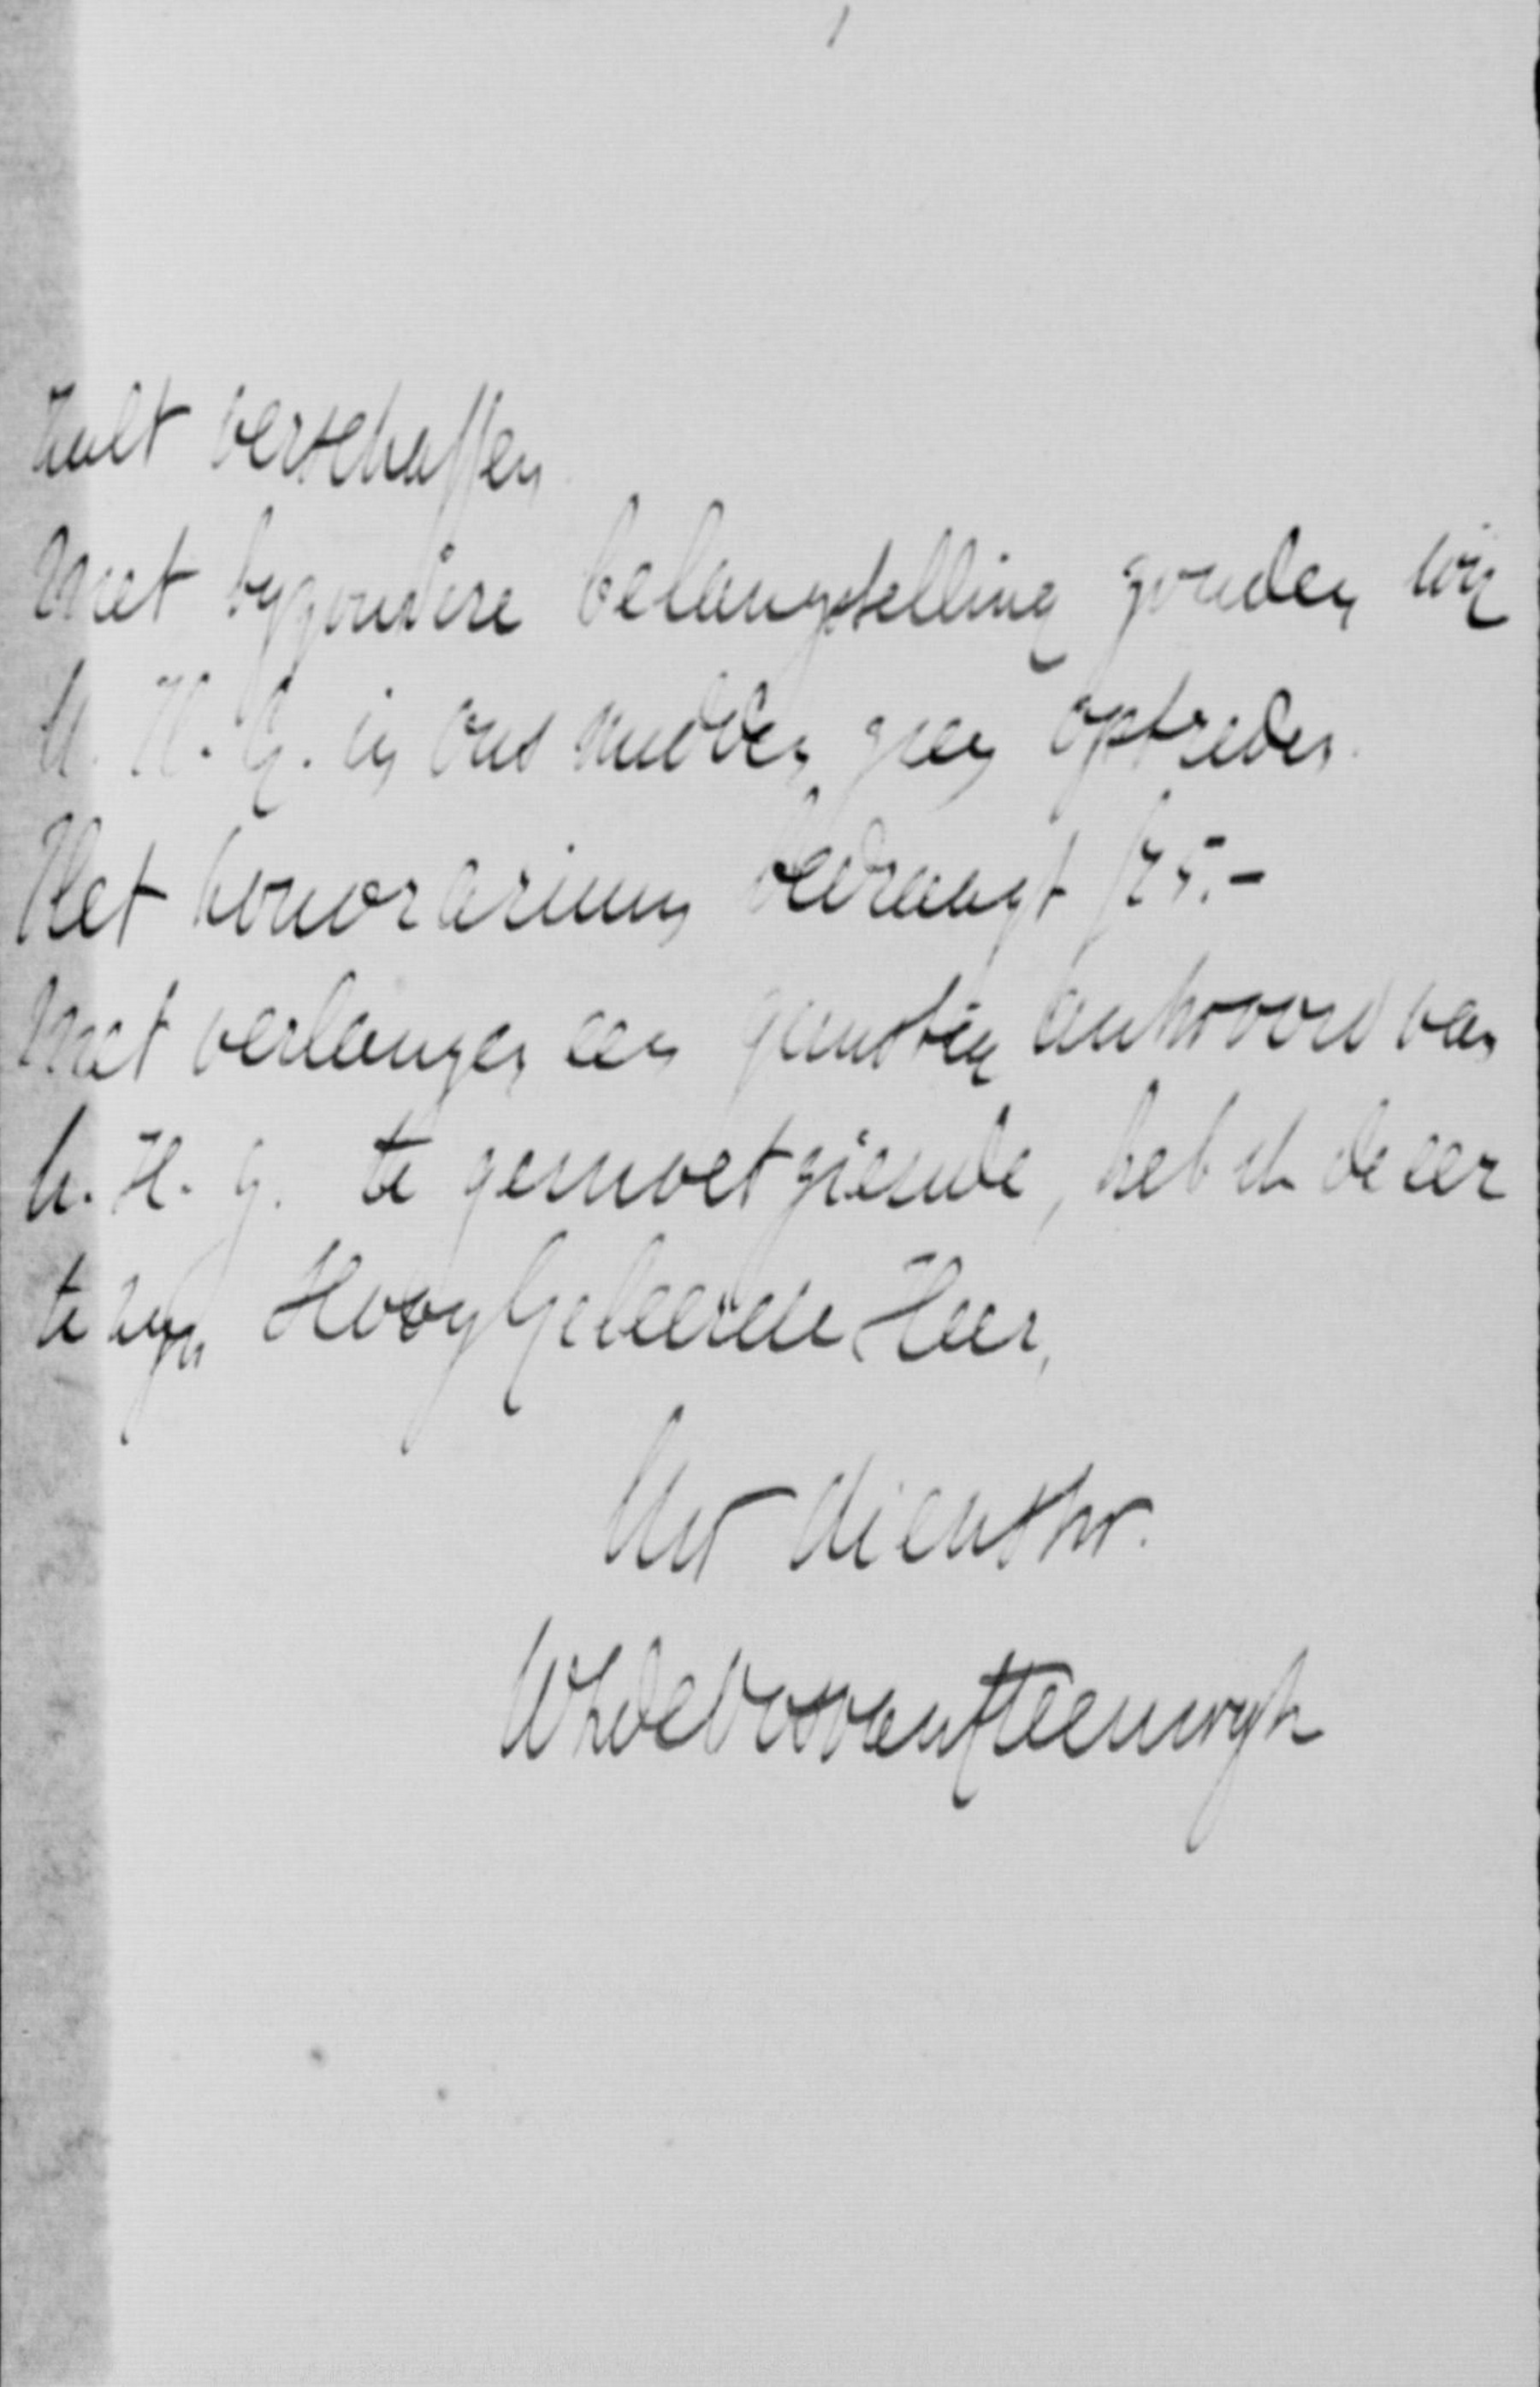 zult verschaffen
Met byzondere belangstelling zouden wij
U. H. G. in ons midden zien optreden.
Het honorarium bedraagt f 75.-
Met verlangen een gunstig antwoord van
U. H. G. te gemoet ziende, heb ik de eer
te zyn HoogGeleerde Heer,
Uw dienstw.
WHdeVosvanSteenwyk